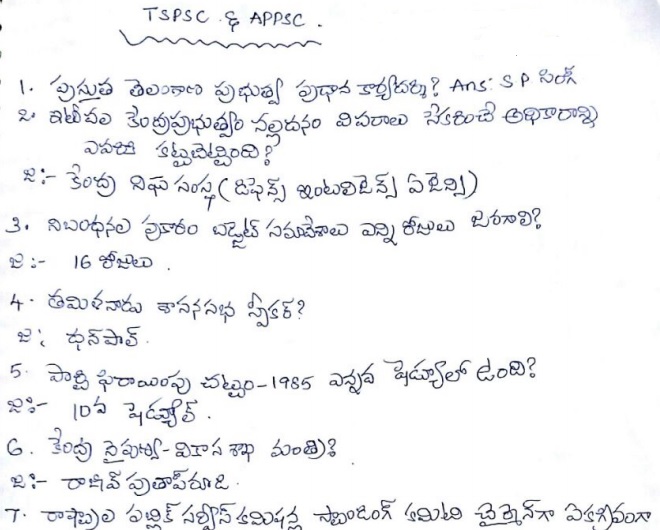 TSPSC & APPSC.
1. ప్రస్తుత తెలంగాణ ప్రభుత్వ ప్రధాన కార్యదర్శి? Ans: SP సింగ్
2. ఇటీవల కేంద్రప్రభుత్వం నల్లధనం వివరాలు సేకరించే అధికారాన్ని
ఎవరికి కట్టబెట్టింది?
జ:- కేంద్ర నిఘా సంస్థ (డిఫెన్స్ ఇంటలిజెన్స్ ఏజెన్సి)
3. నిబంధనల ప్రకారం బడ్జెట్ సమావేశాలు ఎన్ని రోజులు జరగాలి?
జ:- 16 రోజులు.
4. తమిళనాడు శాసనసభ స్పీకర్?
జ: ధన్‌పాల్.
5. పార్టీ ఫిరాయింపు చట్టం-1985 ఎన్నవ షెడ్యూల్‌లో ఉంది?
జ:- 10వ షెడ్యూల్.
6. కేంద్ర నైపుణ్య-వికాస శాఖ మంత్రి?
జ:- రాజీవ్ ప్రతాప్‌రూడి.
7. రాష్ట్రాల పబ్లిక్ సర్వీస్ కమిషన్ల స్టాండింగ్ కమిటి చైర్మెన్‌గా ఏకగ్రీవంగా